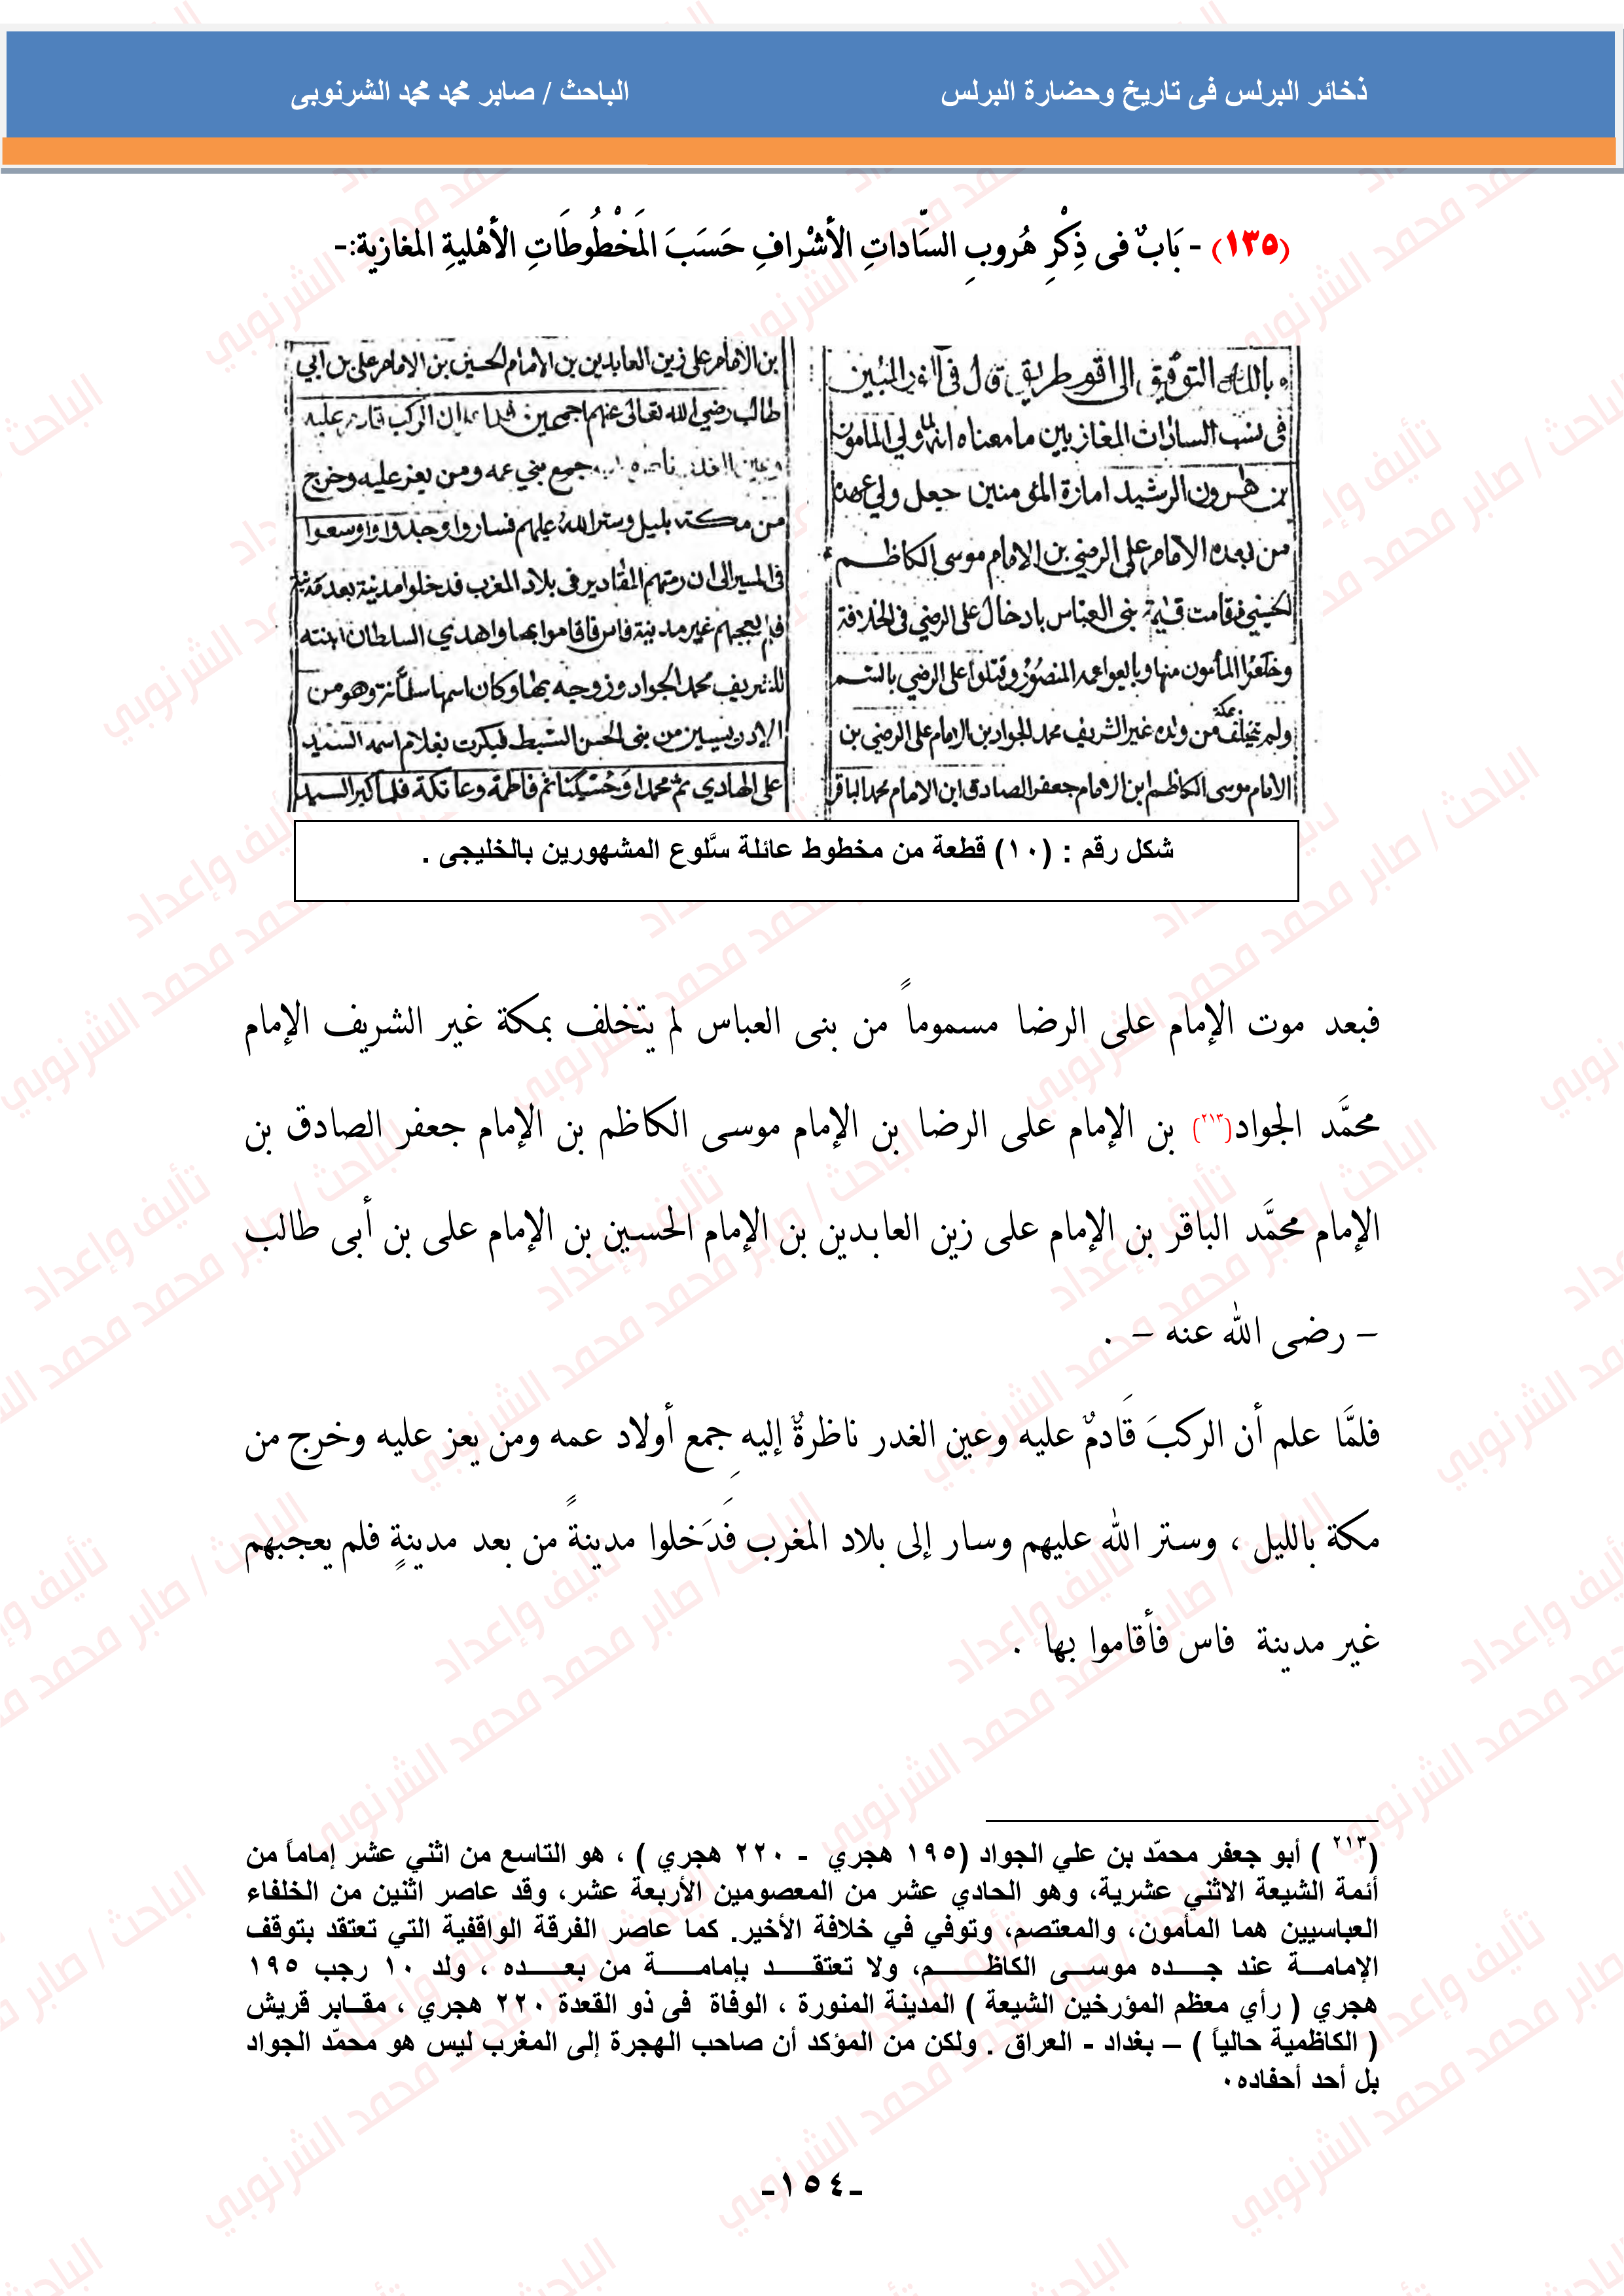 ذخائر البرلس فى تاريخ وحضارة البرلس
الباحث / صابر محمد محمد الشرنوبى
(١٣٥) - بَابٌ فى ذِكْرِ هُروبِ السَّاداتِ الأشْرافِ حَسَبَ المَخْطُوطَاتِ الأهْليةِ المغازية:-
وبالله التوفيق الى اقوم طريق قال في
في نسب السادات المغازيين ما معناه انه لما ولي المامون
بن هرون الرشيد امارة المؤمنين جعل ولي عهده
من بعده الامام على الرضي بن الامام موسى الكاظم
الحسيني فقامت بنى العباس بادخال على الرضي في الخلافة
وخلعوا المأمون منها وبايعوا عمه المنصور وقتلوا على الرضي بالسم
ولم يتخلف بمكة من ولده غير الشريف محمد الجواد بن الامام على الرضي بن
الامام موسى الكاظم بن الامام جعفر الصادق ابن الامام محمد الباقر
بن الامام على زين العابدين بن الامام الحسين بن الامام على بن ابي
طالب رضي الله تعالى عنهم اجمعين ان الركب عليه
وعين جمع بني عمه ومن يعز عليه وخرج
من مكة بليل وستر الله عليهم فساروا وجدوا واوسعوا
في المسير الى ان رمتهم المقادير في بلاد المغرب فدخلوا مدينة بعد مدينة
فلم يعجبهم غير مدينة فاس فاقاموا بها واهدي السلطان ابنته
للشريف محمد الجواد وزوجه بها وكان اسمها سلمانة وهو من
الادريسيين من بنى الحسن السبط فبكرت بغلام اسمه السيد
على الهادي ثم محمدا فاطمة وعاتكة فلما كبر السيد
شكل رقم : (١٠) قطعة من مخطوط عائلة سلّوع المشهورين بالخليجى .
فبعد موت الإمام على الرضا مسموماً من بنى العباس لم يتخلف بمكة غير الشريف الإمام
محمَّد الجواد(٢١٣) بن الإمام على الرضا بن الإمام موسى الكاظم بن الإمام جعفر الصادق بن
الإمام محمَّد الباقر بن الإمام على زين العابدين بن الإمام الحسين بن الإمام على بن أبى طالب
– رضى الله عنه – .
فلمَّا علم أن الركبَ قَادمٌ عليه وعين الغدر ناظرةٌ إليهِ جمع أولاد عمه ومن يعز عليه وخرج من
مكة بالليل ، وستر الله عليهم وسار إلى بلاد المغرب فَدَخلوا مدينةً من بعد مدينةٍ فلم يعجبهم
غير مدينة فاس فأقاموا بها .
(٢١٣ ) أبو جعفر محمّد بن علي الجواد (١٩٥ هجري - ٢٢٠ هجري ) ، هو التاسع من اثني عشر إماماً من
أئمة الشيعة الاثني عشرية، وهو الحادي عشر من المعصومين الأربعة عشر، وقد عاصر اثنين من الخلفاء
العباسيين هما المأمون، والمعتصم، وتوفي في خلافة الأخير. كما عاصر الفرقة الواقفية التي تعتقد بتوقف
الإمامة عند جده موسى الكاظم، ولا تعتقد بإمامة من بعده ، ولد ١٠ رجب ١٩٥
هجري ( رأي معظم المؤرخين الشيعة ) المدينة المنورة ، الوفاة فى ذو القعدة ٢٢٠ هجري ، مقابر قريش
( الكاظمية حالياً ) – بغداد - العراق . ولكن من المؤكد أن صاحب الهجرة إلى المغرب ليس هو محمّد الجواد
بل أحد أحفاده٠
-١٥٤-
تأليف وإعداد
الباحث / صابر محمد محمد الشرنوبي